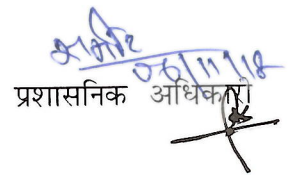 06/11/18
प्रशासनिक अधिकारी